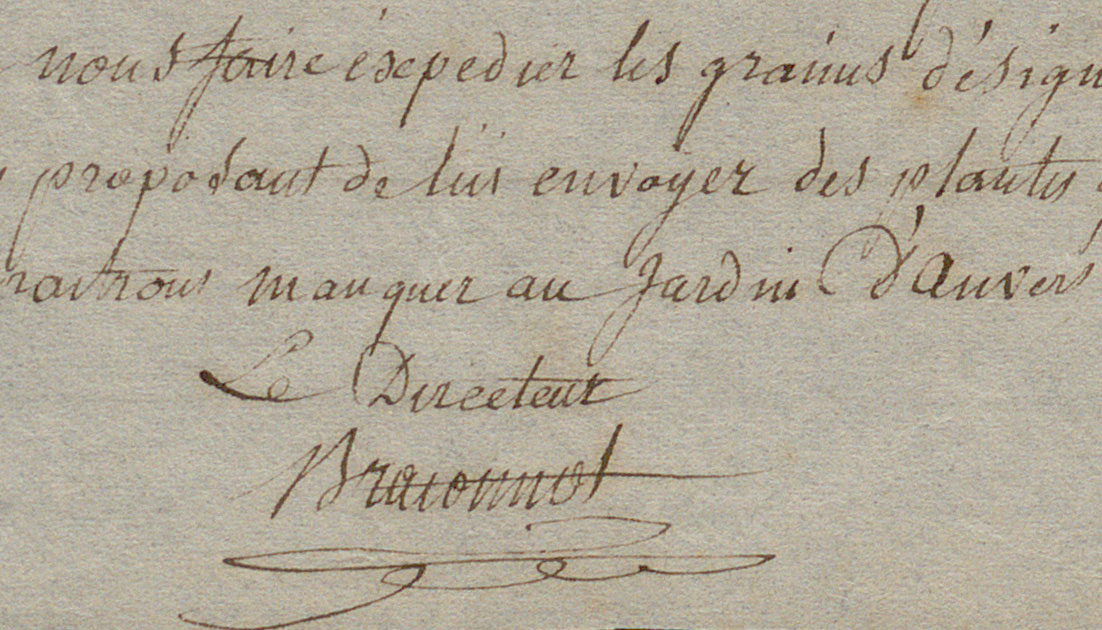 nous faire éxpedier les graines désign
proposant de lüi envoyer des plantes
raitrons manquer au Jardin D'anvers
Le Directeur
Braconnot